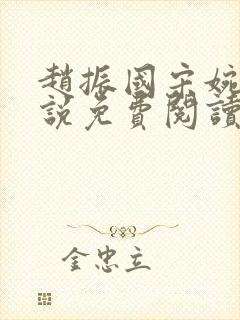 趙振國宋婉
說免費閱讀
金忠立